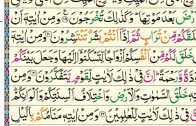 بَعْدَ مَوْتِهَا وَكَذَٰلِكَ تُخْرَجُونَ ۝ وَمِنْ ءَايَٰتِهِۦٓ أَنْ
خَلَقَكُم مِّن تُرَابٍ ثُمَّ إِذَآ أَنتُم بَشَرٌ تَنتَشِرُونَ ۝ وَمِنْ ءَايَٰتِهِۦٓ
أَنْ خَلَقَ لَكُم مِّنْ أَنفُسِكُمْ أَزْوَٰجًا لِّتَسْكُنُوٓا۟ إِلَيْهَا وَجَعَلَ بَيْنَكُم
مَّوَدَّةً وَرَحْمَةً إِنَّ فِى ذَٰلِكَ لَءَايَٰتٍ لِّقَوْمٍ يَتَفَكَّرُونَ ۝ وَمِنْ ءَايَٰتِهِۦ
خَلْقُ ٱلسَّمَٰوَٰتِ وَٱلْأَرْضِ وَٱخْتِلَٰفُ أَلْسِنَتِكُمْ وَأَلْوَٰنِكُمْ
إِنَّ فِى ذَٰلِكَ لَءَايَٰتٍ لِّلْعَٰلِمِينَ ۝ وَمِنْ ءَايَٰتِهِۦ مَنَامُكُم بِٱلَّيْلِ